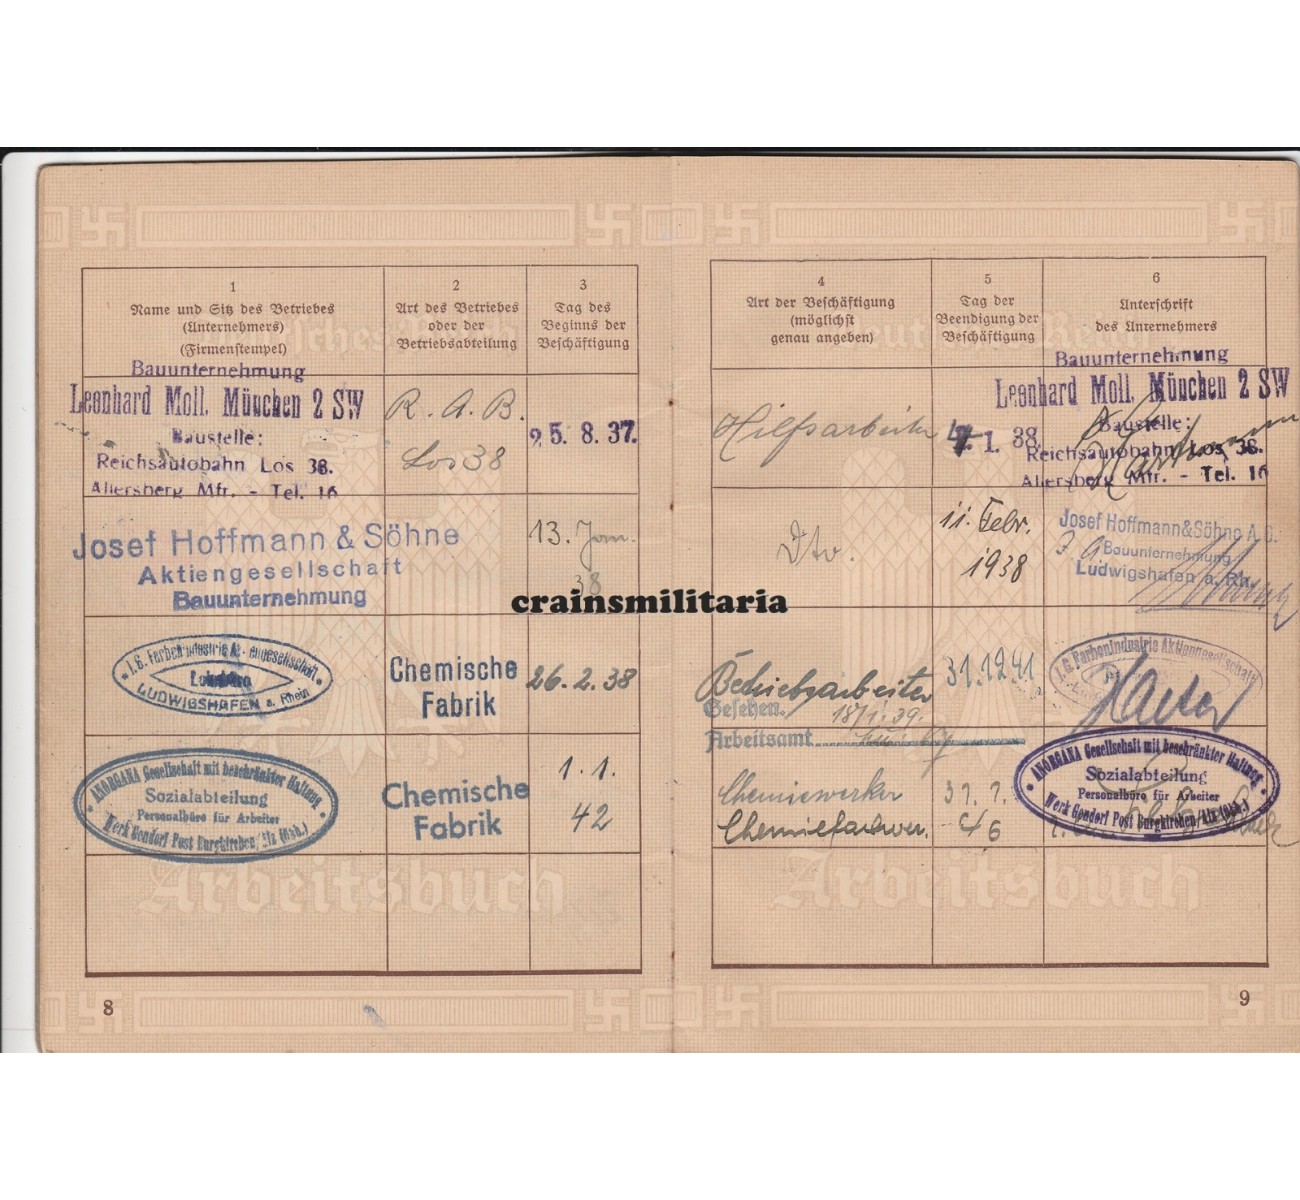 1
Name und Sitz des Betriebes
(Unternehmers)
(Firmenstempel)
2
Art des Betriebes
oder der
Betriebsabteilung
3
Tag des
Beginns der
Beschäftigung
Bauunternehmung
Leonhard Moll. München 2 SW
Baustelle:
Reichsautobahn Los 38.
Allersberg Mfr. - Tel. 16
R. A. B.
Los 38
25. 8. 37.
Josef Hoffmann & Söhne
Aktiengesellschaft
Bauunternehmung
13. Jan.
38
I. G. Farbenindustrie Aktiengesellschaft
Lohnbüro
LUDWIGSHAFEN a. Rhein
Chemische
Fabrik
26. 2. 38
ANORGANA Gesellschaft mit beschränkter Haftung
Sozialabteilung
Personalbüro für Arbeiter
Werk Gendorf Post Burgkirchen/Alz (Obb.)
Chemische
Fabrik
1. 1.
42
Arbeitsbuch
8
4
Art der Beschäftigung
(möglichst
genau angeben)
5
Tag der
Beendigung der
Beschäftigung
6
Unterschrift
des Unternehmers
Hilfsarbeiter
1. 38.
Bauunternehmung
Leonhard Moll. München 2 SW
Baustelle:
Reichsautobahn Los 38.
Allersberg Mfr. - Tel. 16
Dto.
11. Febr.
1938
Josef Hoffmann & Söhne A. G.
Bauunternehmung
Ludwigshafen a. Rh.
Betriebsarbeiter
Gesehen.
18/1. 39.
Arbeitsamt
31. 12. 41
I. G. Farbenindustrie Aktiengesellschaft
Chemiewerker
Chemiefachwer.
31. 7.
46
ANORGANA Gesellschaft mit beschränkter Haftung
Sozialabteilung
Personalbüro für Arbeiter
Werk Gendorf Post Burgkirchen/Alz (Obb.)
Deutsches Reich
Arbeitsbuch
9
crainsmilitaria